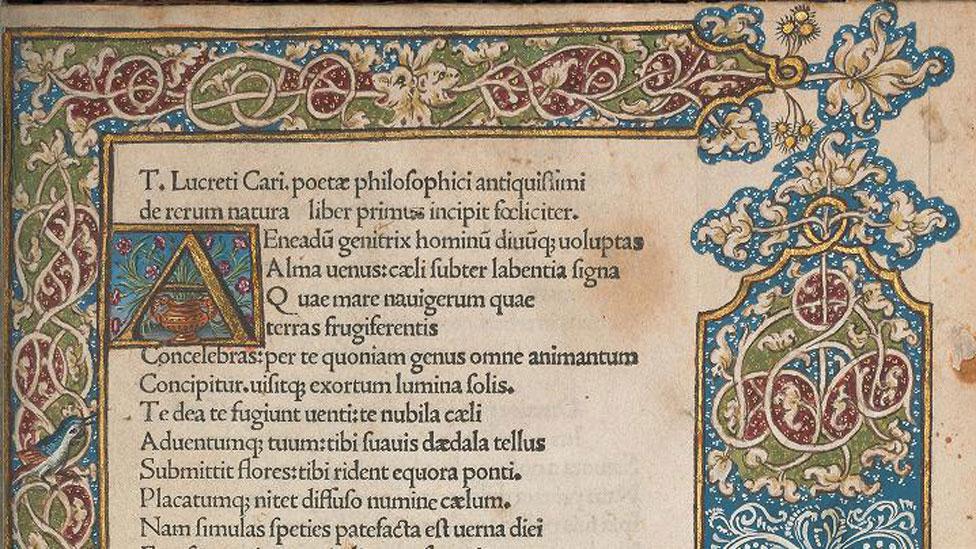 T. Lucreti Cari. poetæ philoſophici antiquiſſimi
de rerum natura liber primus incipit fœliciter.
AEneadū genitrix hominū diuūq; uoluptas
Alma uenus: cæli ſubter labentia ſigna
Quae mare nauigerum quae
terras frugiferentis
Concelebras: per te quoniam genus omne animantum
Concipitur. uiſitq; exortum lumina ſolis.
Te dea te fugiunt uenti: te nubila cæli
Aduentumq; tuum: tibi ſuauis dædala tellus
Submittit flores: tibi rident equora ponti.
Placatumq; nitet diffuſo numine cælum.
Nam ſimulas ſpeties patefacta eſt uerna diei